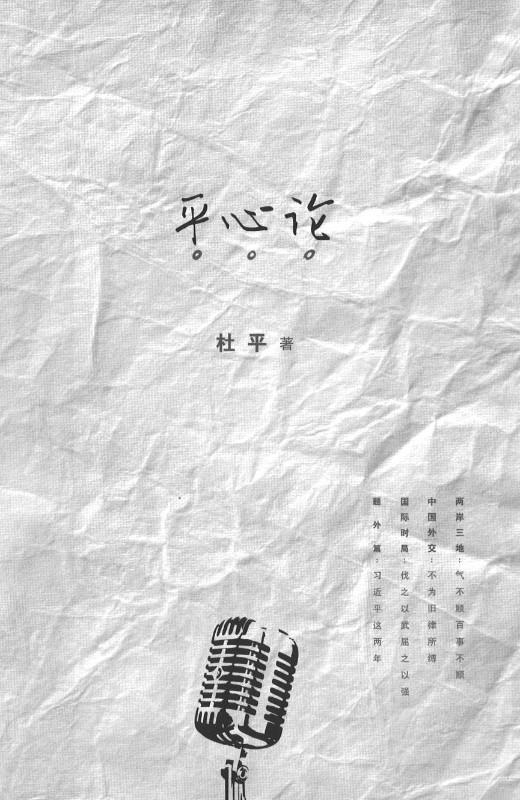 平心论
杜平 著
两岸三地：气不顺百事不顺
中国外交：不为旧律所缚
国际时局：伐之以武屈之以强
题外篇：习近平这两年